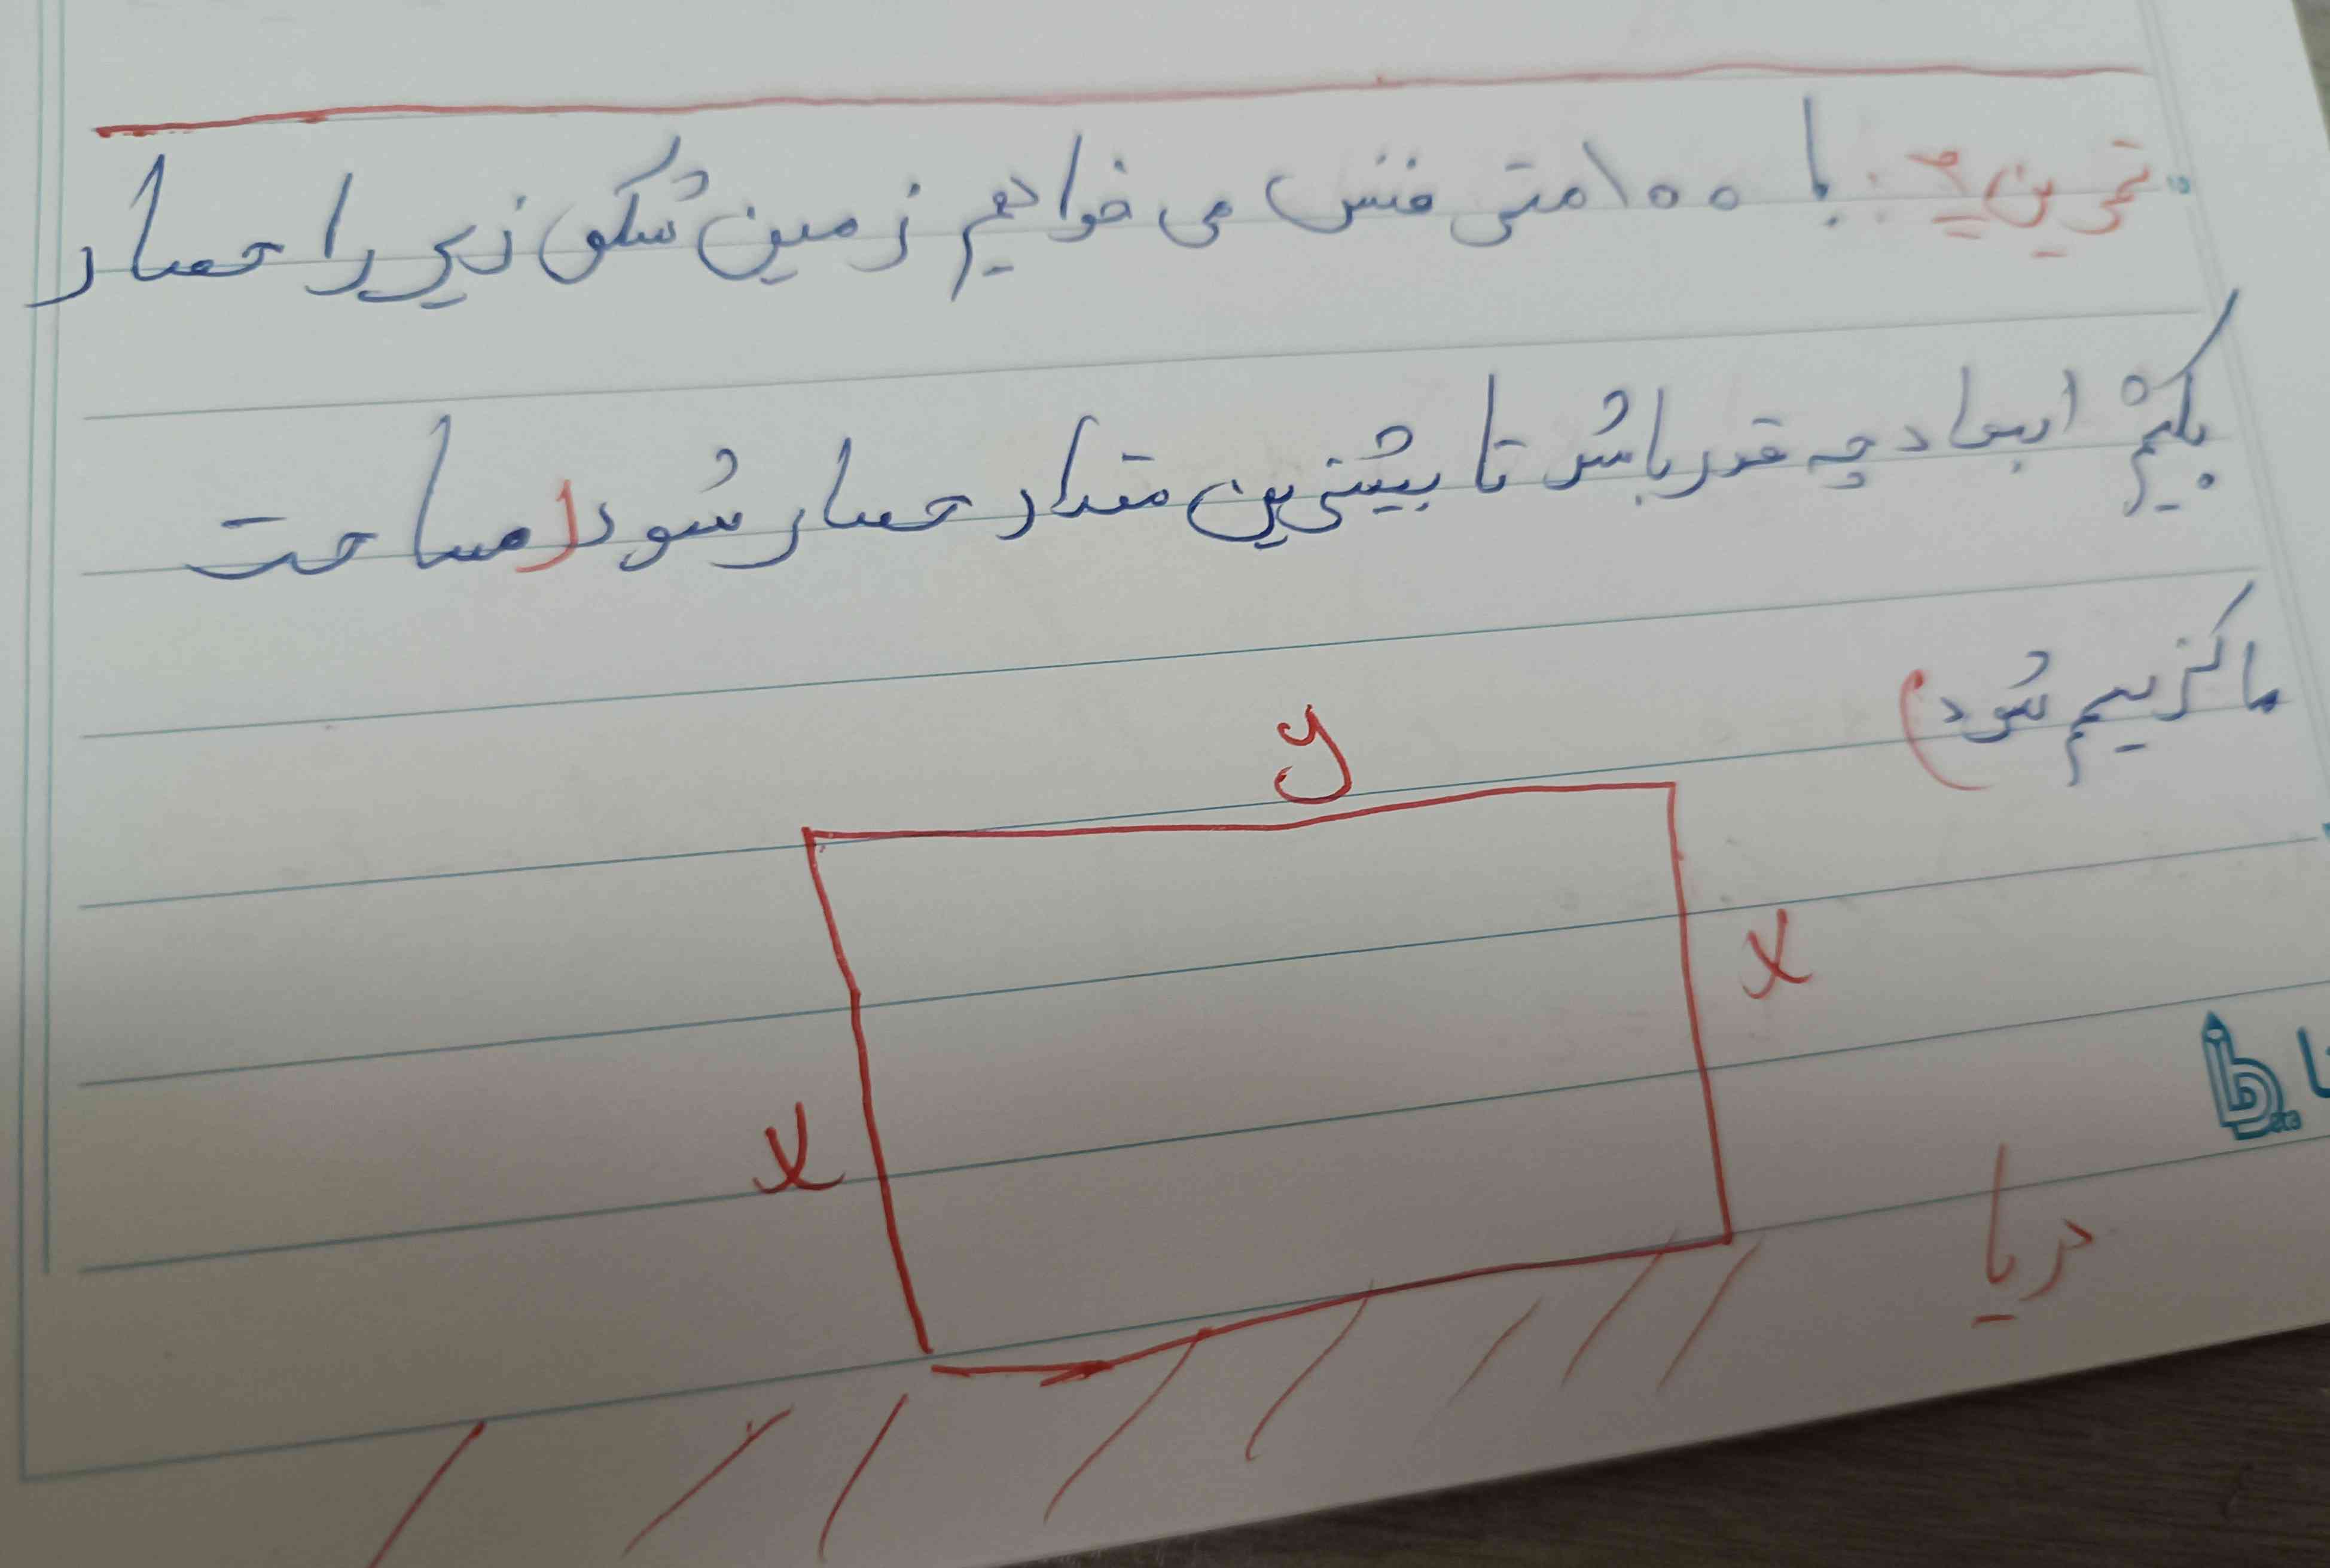 تمرین ۲: با ۱۰۰ متر فنس می خواهیم زمین شکل زیر را حصار
بکشیم ابعاد چه قدر باشد تا بیشترین مقدار حصار شود (مساحت
ماکزیمم شود)
y
x
x
دریا